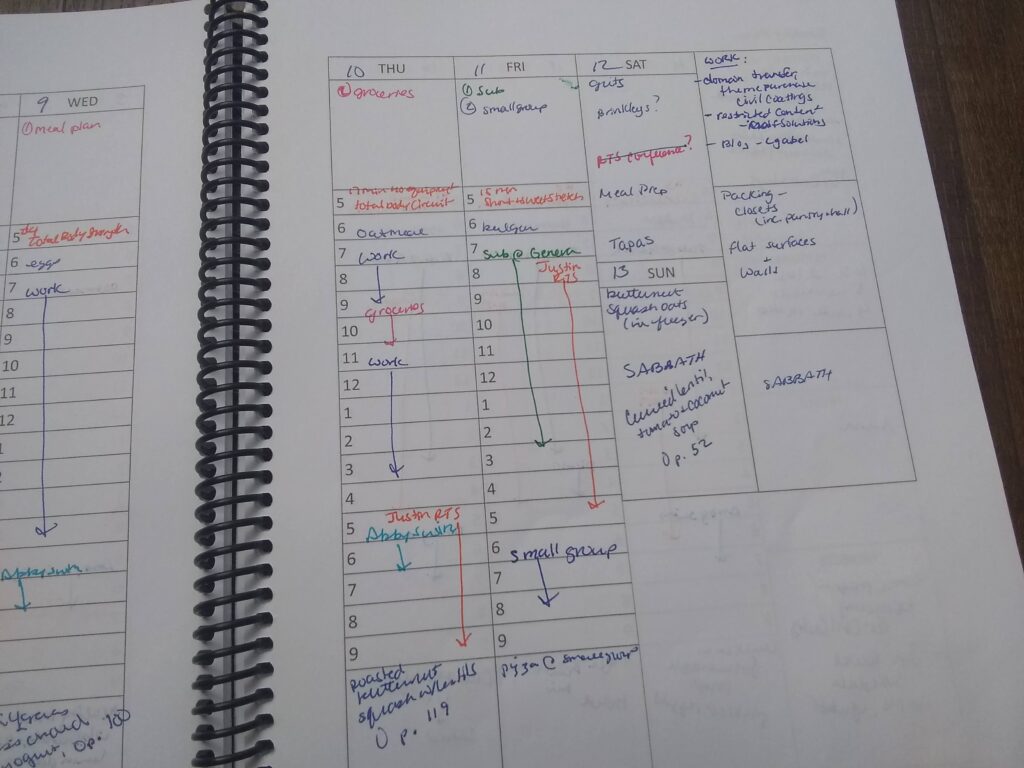 9 WED
① meal plan
5
total Body Strength
6 eggs
7 work
8
9
10
11
12
1
2
Abby
100
10 THU
② groceries
5 17 min no equipment
total body circuit
6 oatmeal
7 work
8
9 groceries
10
11 work
12
1
2
3
4
5 Justin RTS
6 Abby
7
8
9
roasted
butternut
squash w/lentils
O p. 119
11 FRI
① Sub
② small group
5 15 min
Short & sweet stretch
6 bulgur
7 Sub @ Geneva
8 Justin
RTS
9
10
11
12
1
2
3
4
5
6 small group
7
8
9
pizza @ small group
12 SAT
grits
Brinkleys?
RTS conference?
Meal Prep
Tapas
13 SUN
butternut
squash oats
(in freezer)
SABBATH
curried lentil,
tomato + coconut
soup
O p. 52
WORK:
- domain transfer,
theme purchase
civil coatings
- restricted content
Solutions
- Blog - Cgabel
Packing -
closets
(inc. pantry + hall)
flat surfaces
+
walls
SABBATH